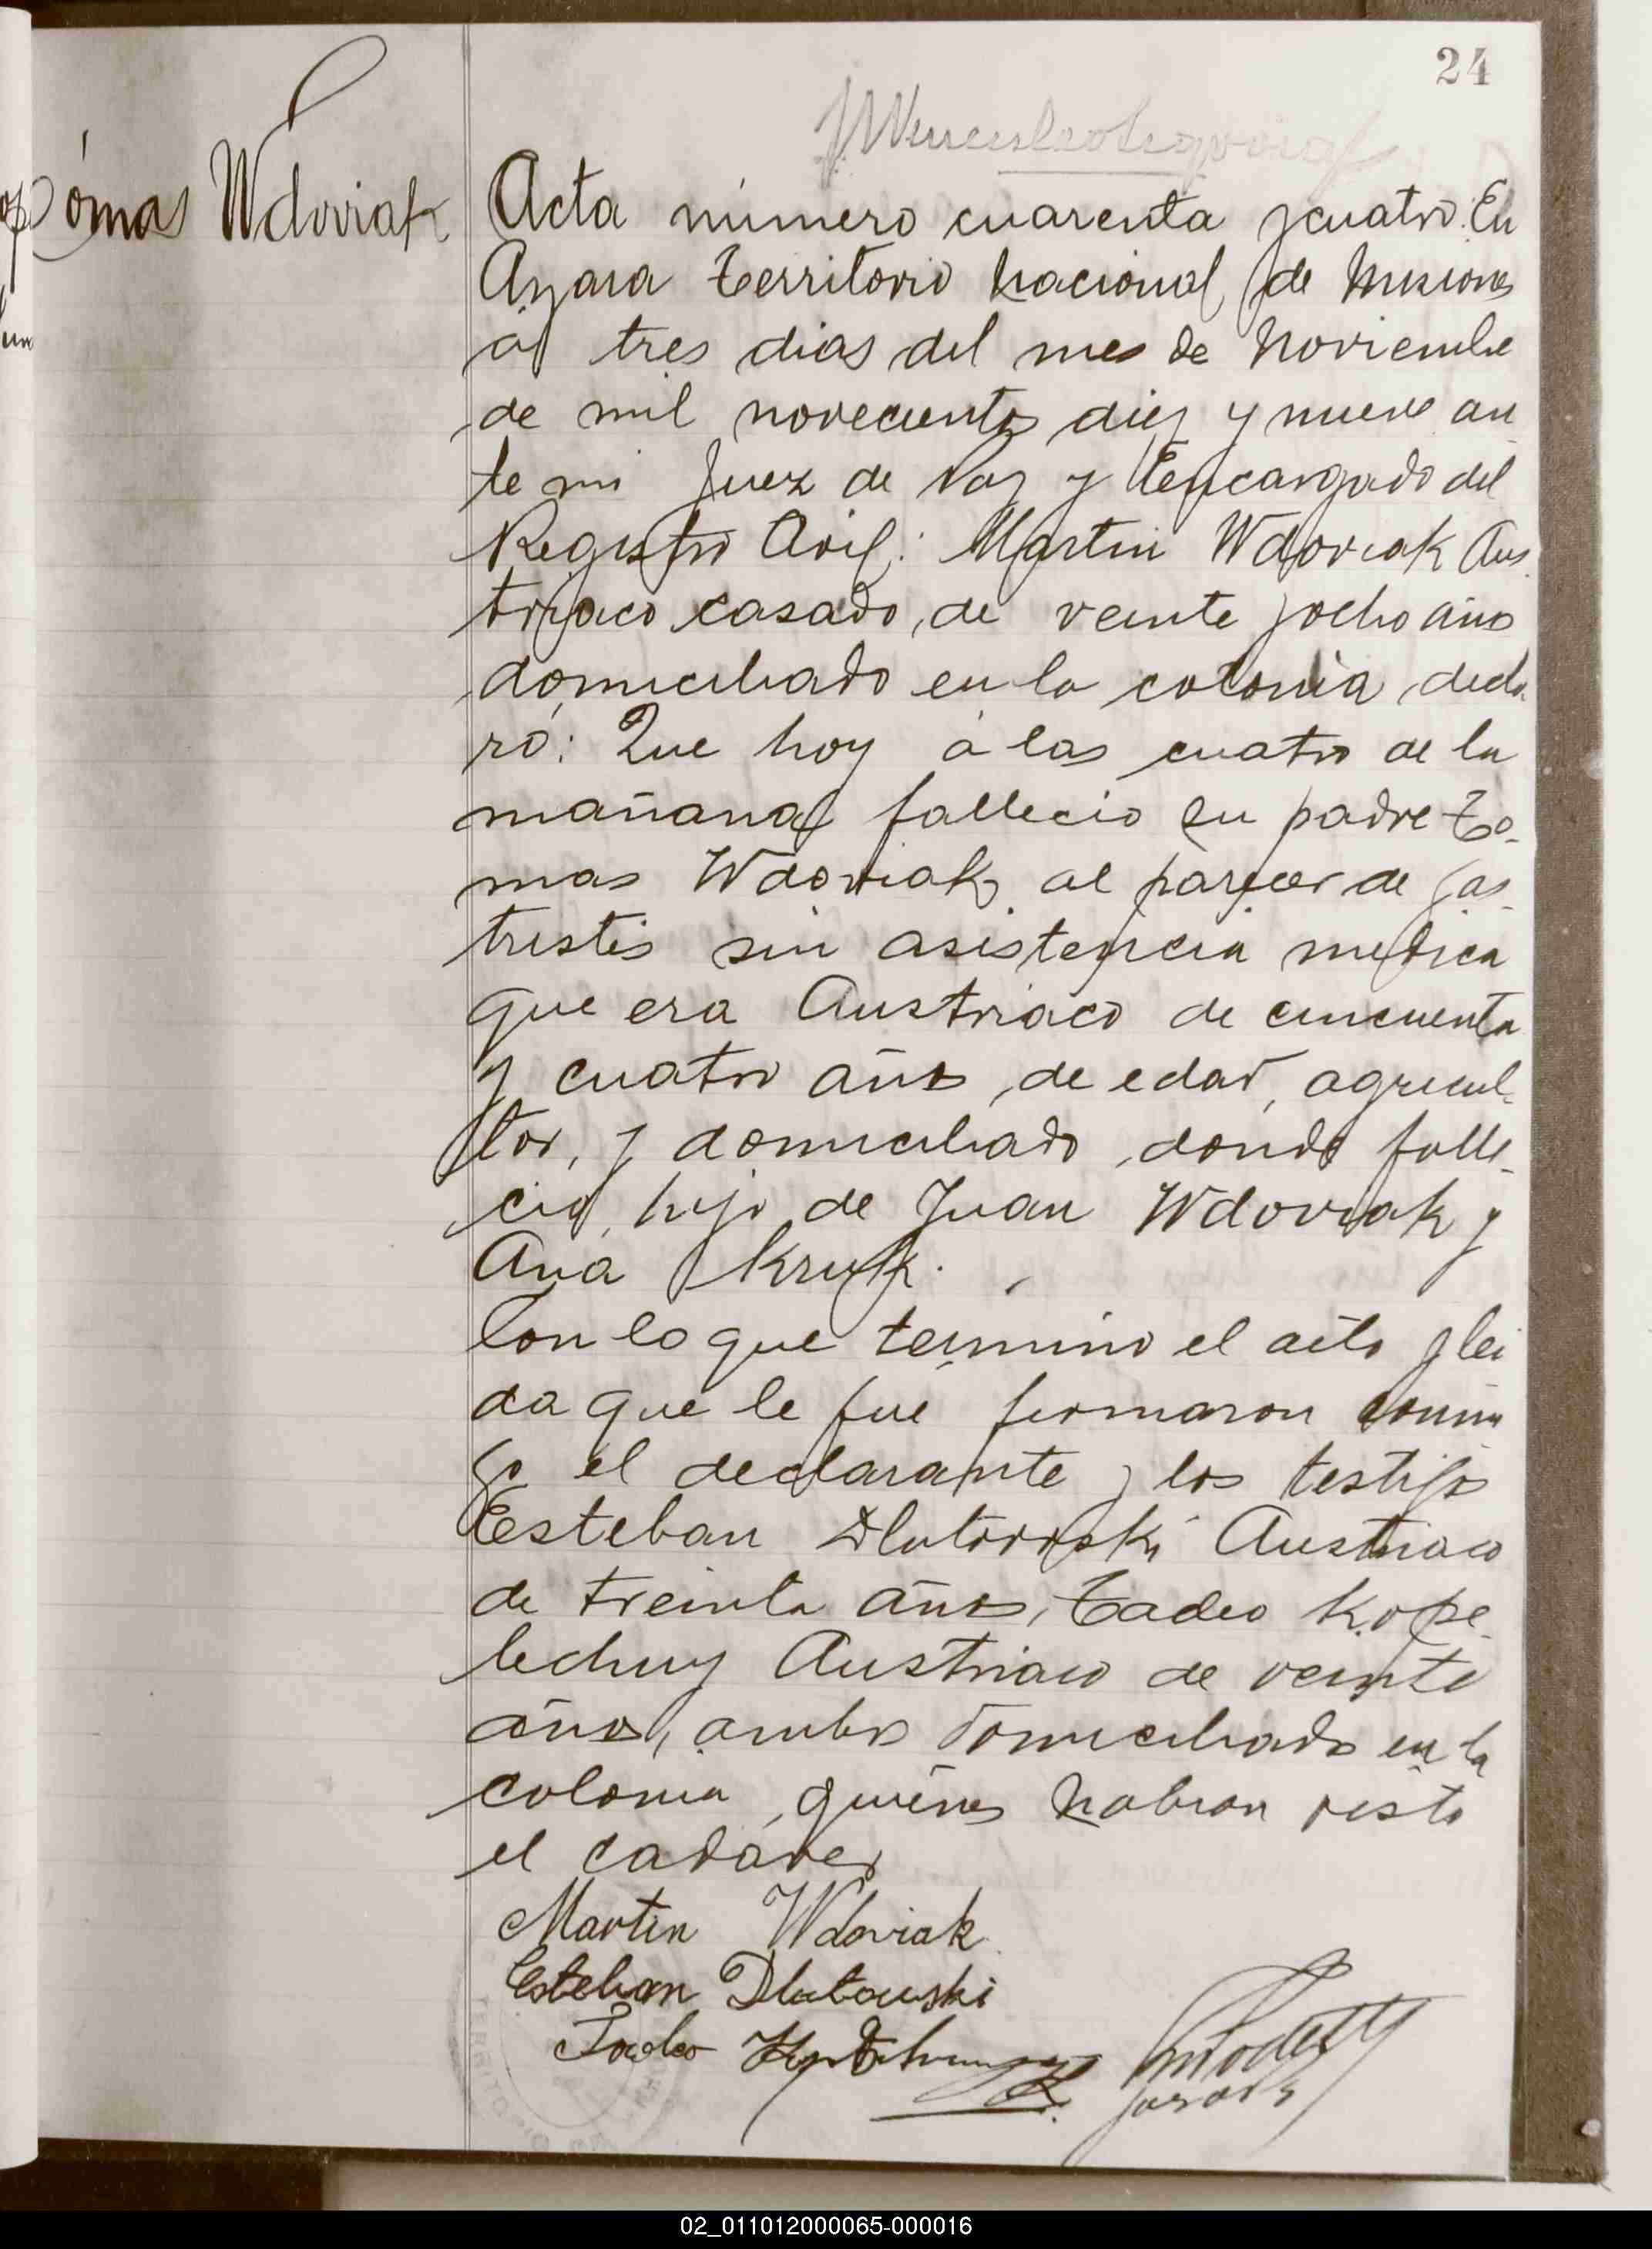 24
Tomas Wdoviak
Acta número cuarenta y cuatro. En
Azara territorio Nacional de Misiones
á tres dias del mes de Noviembre
de mil novecientos diez y nueve an
te mi Juez de Paz y Encargado del
Registro Civil: Martin Wdoviak Aus
triaco casado, de veinte y ocho años
domiciliado en la colonia, decla
ró: Que hoy á las cuatro de la
mañana fallecio su padre To-
mas Wdoviak al parecer de gas-
tristis sin asistencia medica
que era Austriaco de cincuenta
y cuatro años, de edad, agricul-
tor, y domiciliado, donde falle-
cio, hijo de Juan Wdoviak y
Ana Kruk.
Con lo que termino el acto y lei
da que le fué firmaron conmi
go el declarante y los testigos
Esteban Dlutowski Austriaco
de treinta años, Tadeo Kope-
lechuy Austriaco de veinte
años, ambos domiciliado en la
colonia, quiénes habian visto
el cadáver
Martin Wdoviak
Esteban Dlutowski
Tadeo
02_011012000065-000016